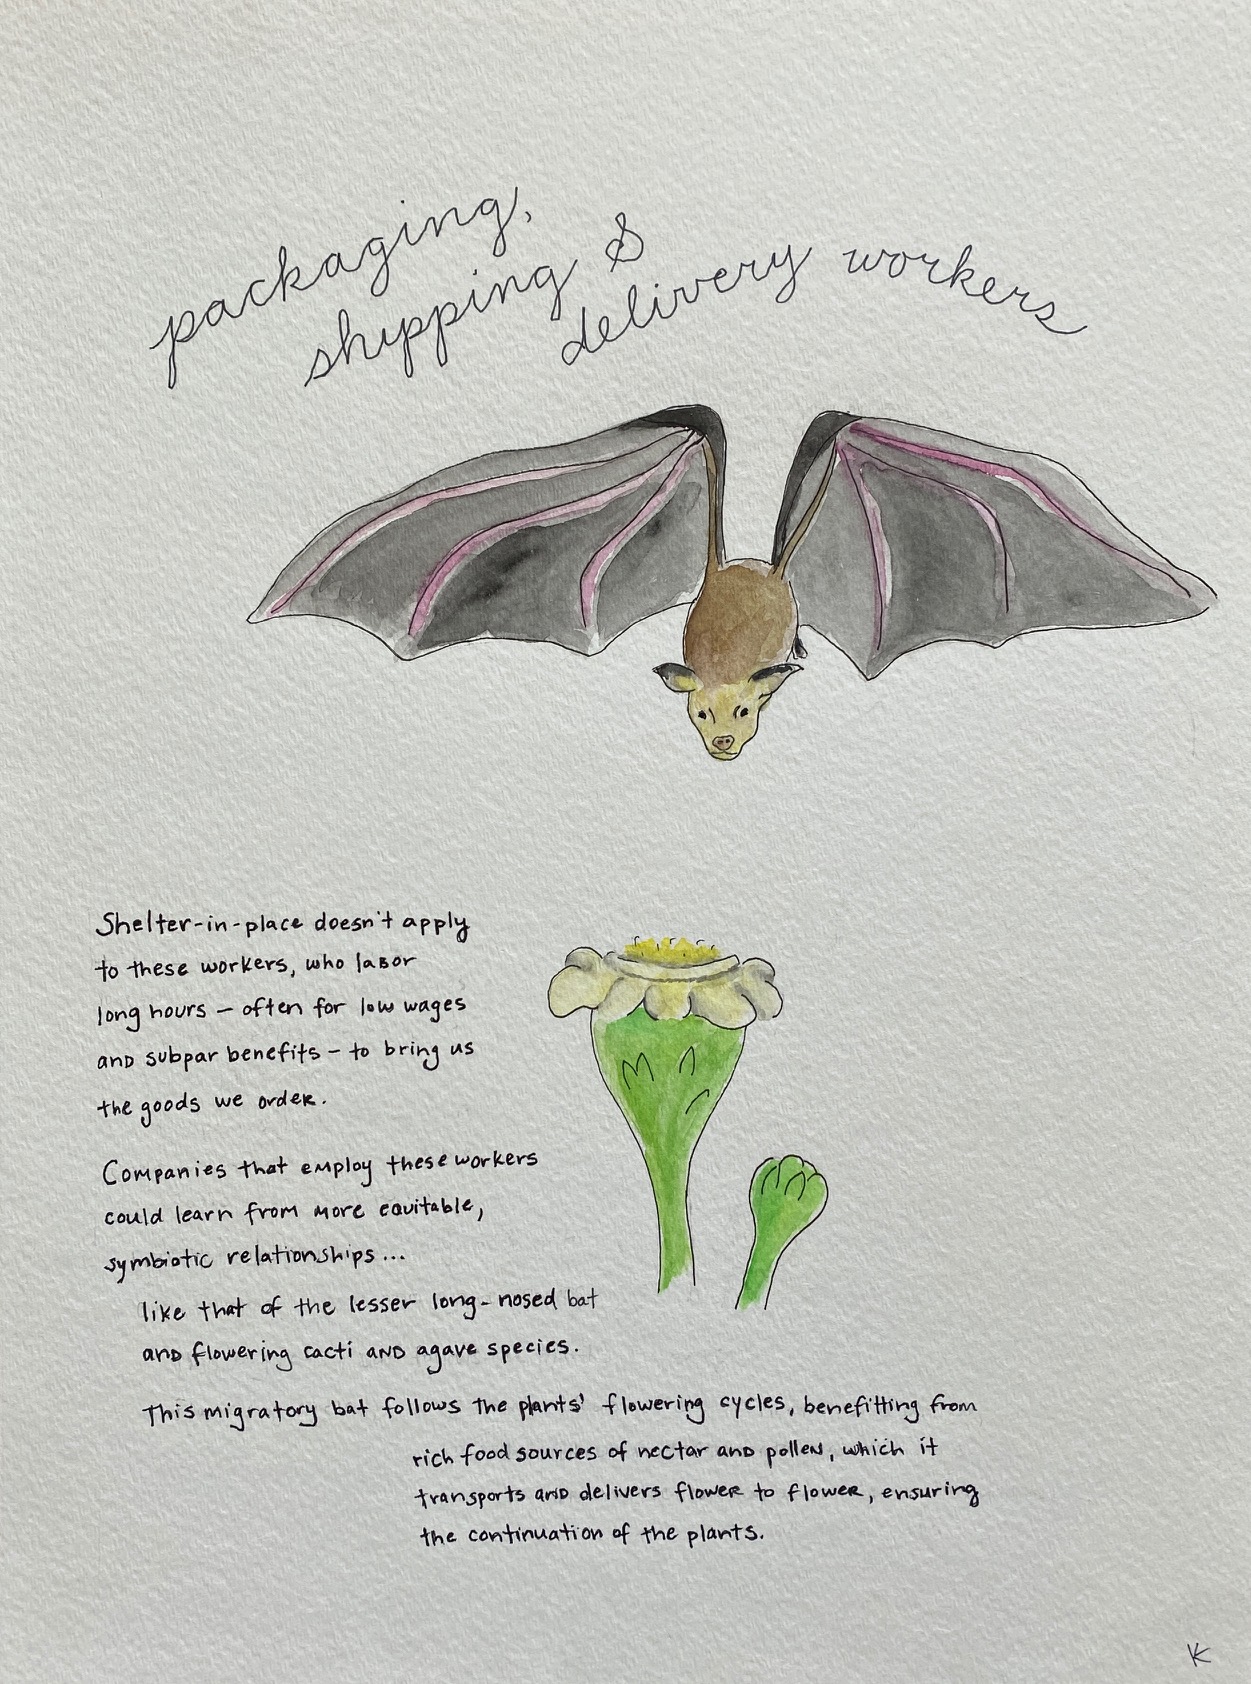 packaging,
shipping &
delivery workers
Shelter-in-place doesn't apply
to these workers, who labor
long hours – often for low wages
and subpar benefits – to bring us
the goods we order.
Companies that employ these workers
could learn from more equitable,
symbiotic relationships...
like that of the lesser long-nosed bat
and flowering cacti and agave species.
This migratory bat follows the plants' flowering cycles, benefitting from
rich food sources of nectar and pollen, which it
transports and delivers flower to flower, ensuring
the continuation of the plants.
KK